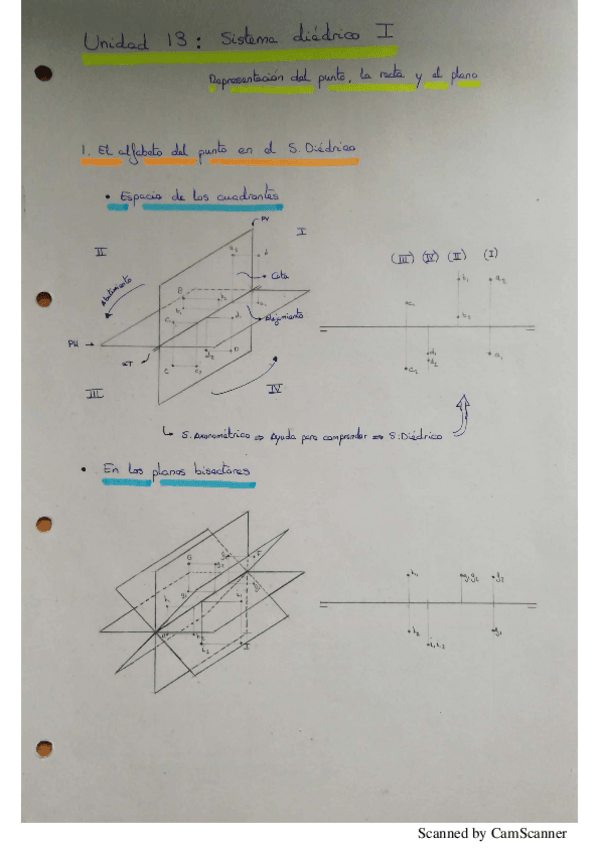 Unidad 13: Sistema diédrico I
Representación del punto, la recta y el plano
1. El alfabeto del punto en el S. Diédrico
• Espacio de los cuadrantes
PV
I
II
(III) (IV) (II) (I)
Abatimiento
Cota
Alejamiento
PH
LT
III
IV
S. Axonométrico ⇒ Ayuda para comprender ⇒ S. Diédrico
• En los planos bisectores
Scanned by CamScanner